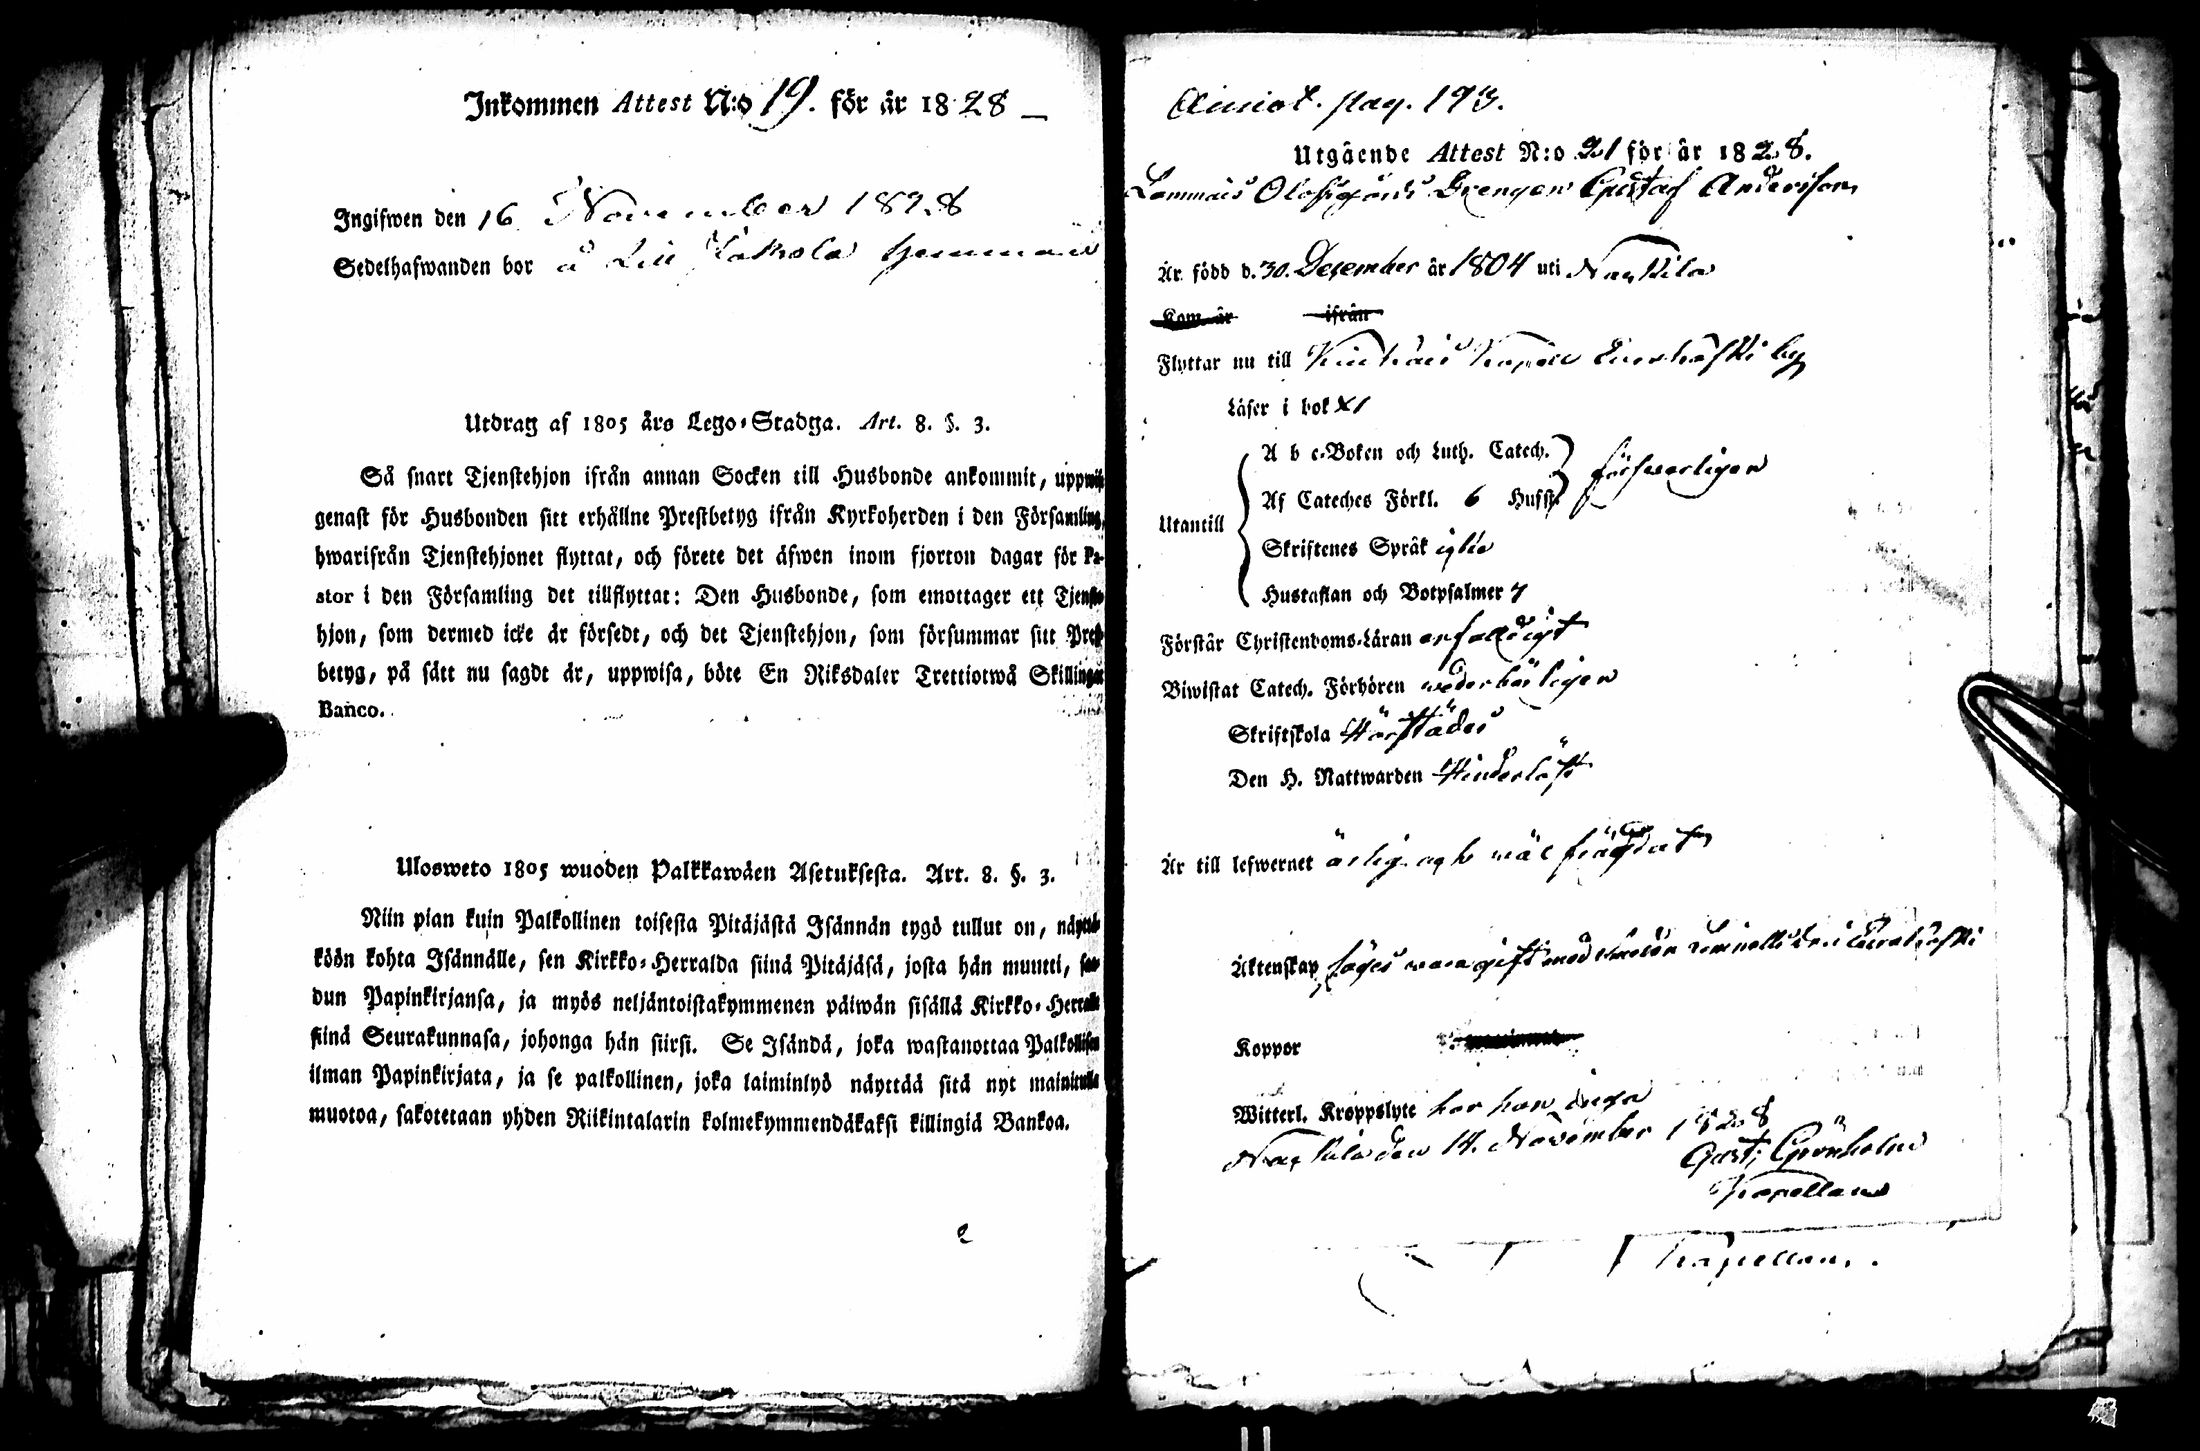 Inkommen Attest N:o 19. för år 1828
Ingifwen den 16 November 1828
Sedelhafwanden bor å Lill Jakola hemman
Utdrag af 1805 års Lego-Stadga. Art. 8. §. 3.
Så snart Tjenstehjon ifrån annan Socken till Husbonde ankommit, uppwise
genast för Husbonden sitt erhållne Prestbetyg ifrån Kyrkoherden i den Församling,
hwarifrån Tjenstehjonet flyttat, och förete det äfwen inom fjorton dagar för Pa-
stor i den Församling det tillflyttat: Den Husbonde, som emottager ett Tjenste-
hjon, som dermed icke är försedt, och det Tjenstehjon, som försummar sitt Prest-
betyg, på sätt nu sagdt är, uppwisa, böte En Riksdaler Trettiotwå Skillingar
Banco.
Ulosweto 1805 wuoden Palkkawäen Asetuksesta. Art. 8. §. 3.
Niin pian kuin Palkollinen toisesta Pitäjästä Isännän tygö tullut on, näyttä-
köön kohta Isännälle, sen Kirkko-Herralda siinä Pitäjäsä, josta hän muutti, saa-
dun Papinkirjansa, ja myös neljäntoistakymmenen päiwän sisällä Kirkko-Herralle
siinä Seurakunnasa, johonga hän siirsi. Se Isändä, joka wastanottaa Palkollisen
ilman Papinkirjata, ja se palkollinen, joka laiminlyö näyttää sitä nyt mainitulla
muotoa, sakotetaan yhden Riikintalarin kolmekymmendäkaksi killingiä Bankoa.
pag. 193.
Utgående Attest N:o 21 för år 1828.
Lammais Olofsgårds Drengen Gustaf Andersson
Är född d. 30. December år 1804 uti Nakkila
Kom år ifrån
Flyttar nu till Kiukais Kapell Eurakoski by
Läser i bok
Utantill
A b c-Boken och Luth. Catech. försvarligen
Af Cateches Förkl. 6 Hufst.
Skriftenes Språk
Hustaflan och Botpsalmer 7
Förstår Christendoms-Läran enfalldigt
Biwistat Catech. Förhören wederbörligen
Skriftskola Härstädes
Den H. Nattwarden Hinderlöst
Är till lefwernet ärlig och wäl frägdat
Äktenskap säges wara gift med i Eurakoski
Koppor
Witterl. Kroppslyte har han inga
Nakkila den 14. November 1828
Gust. Grönholm
Kapellan
Kapellan.